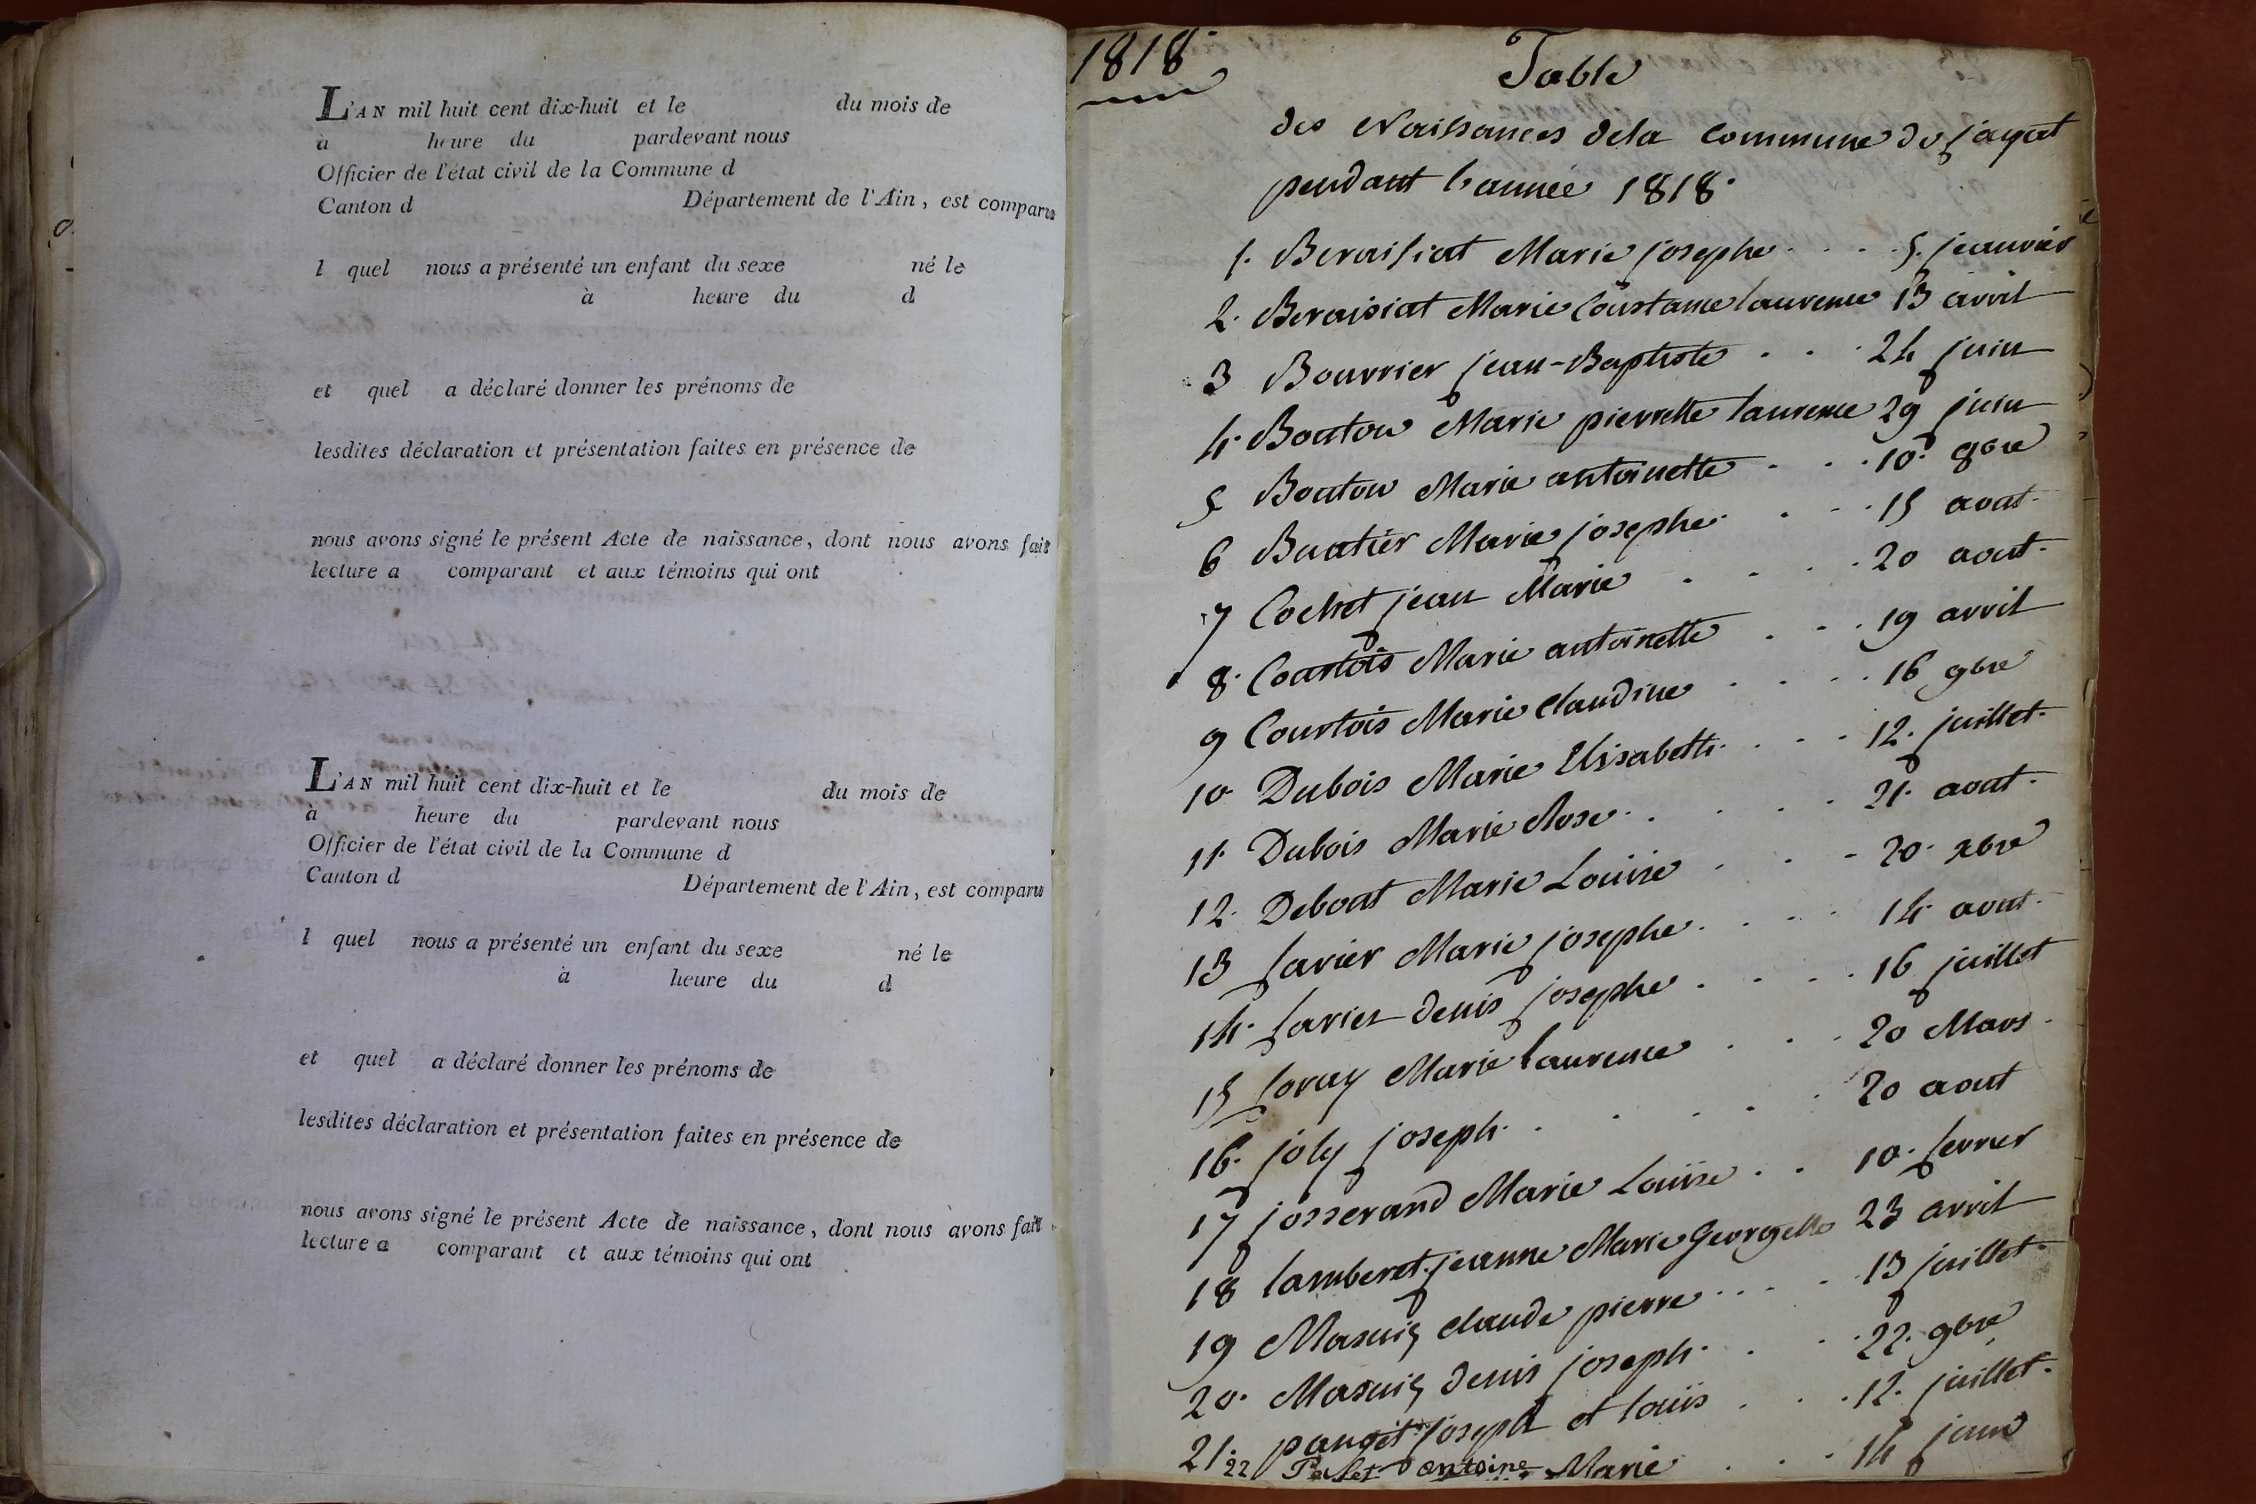 L'AN mil huit cent dix-huit et le du mois de
à heure du pardevant nous
Officier de l'état civil de la Commune d
Canton d Département de l'Ain, est comparu
l quel nous a présenté un enfant du sexe né le
à heure du d
et quel a déclaré donner les prénoms de
lesdites déclaration et présentation faites en présence de
nous avons signé le présent Acte de naissance, dont nous avons fait
lecture a comparant et aux témoins qui ont
L'AN mil huit cent dix-huit et le du mois de
à heure du pardevant nous
Officier de l'état civil de la Commune d
Canton d Département de l'Ain, est comparu
l quel nous a présenté un enfant du sexe né le
à heure du d
et quel a déclaré donner les prénoms de
lesdites déclaration et présentation faites en présence de
nous avons signé le présent Acte de naissance, dont nous avons fait
lecture a comparant et aux témoins qui ont
1818.
Table
des Naissances dela commune de jayat
pendant l'année 1818.
1. Beraisiat Marie josephe 5. jeanvier
2. Beraisiat Marie Constance laurence 13 avril
3 Bourrier jean-Baptiste 24 juin
4. Bouton Marie pierrette laurence 29 juin
5 Bouton Marie antoinette 10. 9bre
6 Buatier Marie josephe 15 aout
7 Cochet jean Marie 20 aout
8. Courtois Marie antoinette 19 avril
9 Courtois Marie claudine 16 9bre
10 Dubois Marie Elisabeth 12. juillet
11. Dubois Marie Rose 21. aout
12. Debost Marie Louise 20. xbre
13 favier Marie josephe 14. aout
14. favier denis josephe 16 juillet
15 foray Marie laurence 20 Mars
16. joly joseph 20 aout
17 josserand Marie Louise 10. fevrier
18 lamberet jeanne Marie Georgette 23 avril
19 Masuis claude pierre 13 juillet
20. Masuis denis joseph 22. 9bre
21. panget joseph et louis 12. juillet
22 antoine Marie 14 juin